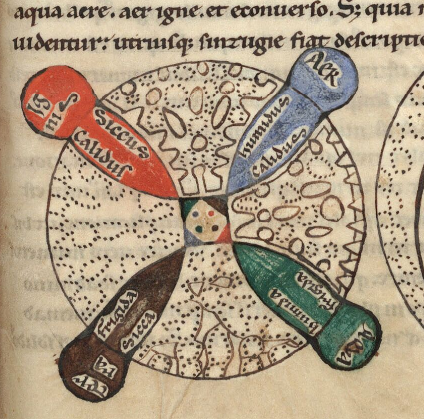 aqua aere. aer igne. et econuerso. Sꝫ quia
uidentur: utriusqꝫ sinzugie fiat descriptio
Ig
nis
Siccus
calidus
Aer
humidus
calidus
frigida
sicca
ter
ra
frigida
humida
Aqua